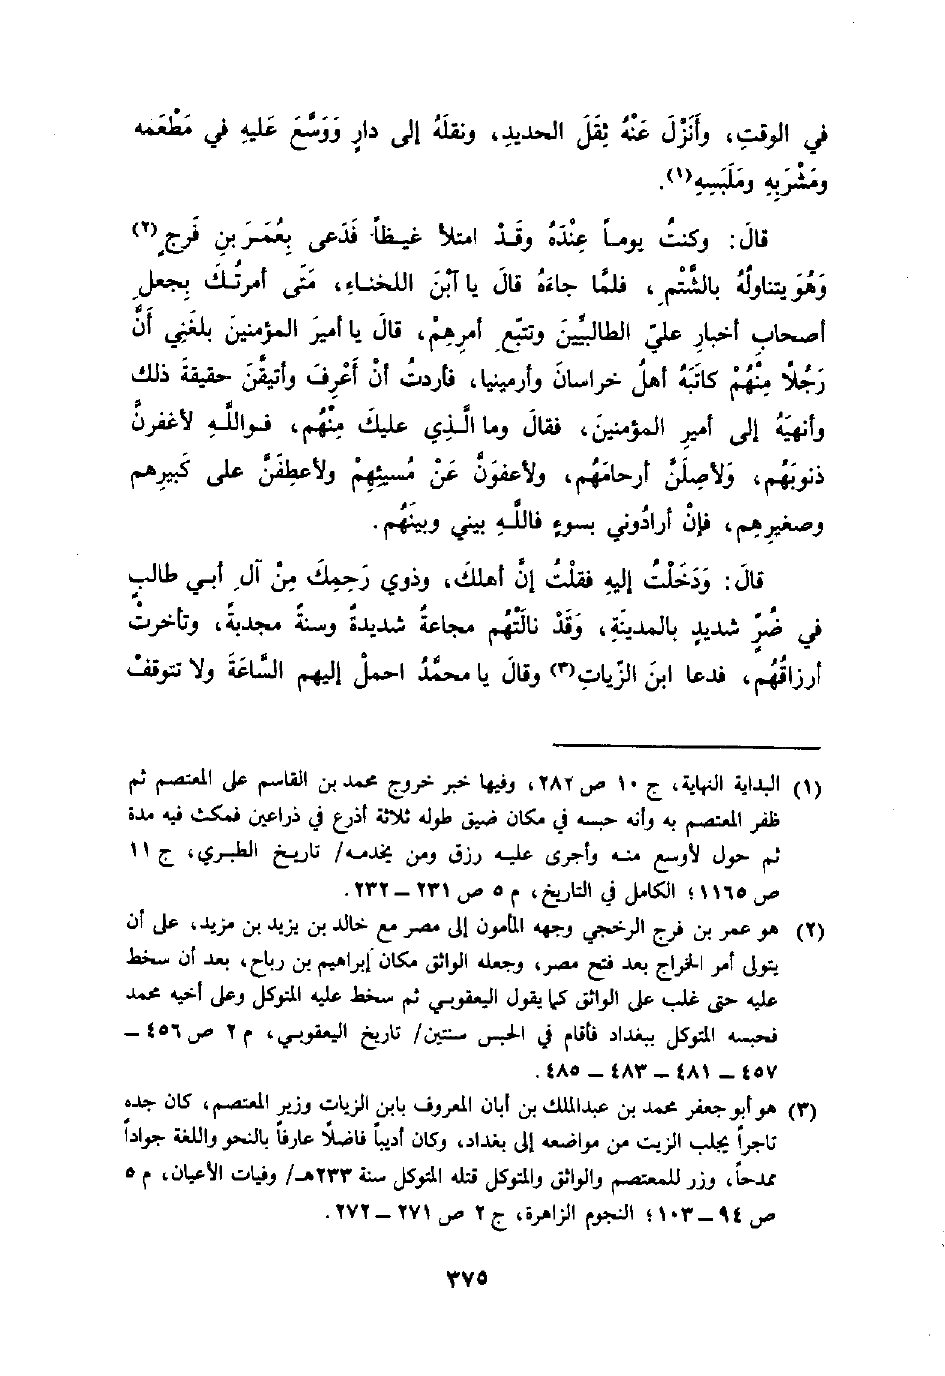 في الوقتِ، وأَنَزْلَ عَنْهُ ثِقَلَ الحديدِ، ونقلَهُ إلى دارٍ وَوَسَّعَ عَليهِ في مَطْعَمه
ومَشْرَبِهِ ومَلَبَسِهِ(١).
قالَ: وكنتُ يوماً عِنْدَهُ وقَدْ امتلأ غيظاً فَدَعى بِعُمَرَ بنِ فَرجٍ(٢)
وَهُوَ يتناولُهُ بالشَّتْمِ، فلمَّا جاءَهُ قالَ يا آبْنَ اللخناءِ، مَتَى أمرتُكَ بِجعلِ
أصحابِ أخبارِ عليّ الطالبيِّينَ وتتبّعِ أمرِهِمْ، قالَ يا أميرَ المؤمنينَ بلغَنِي أنَّ
رَجُلاً مِنْهُمْ كاتَبَهُ أهلُ خراسانَ وأرمينيا، فأردتُ أنْ أَعْرِفَ وأتيقَّنَ حقيقةَ ذلك
وأنهيَهُ إلى أميرِ المؤمنينَ، فقالَ وما الَّذِي عليكَ مِنْهُم، فواللَّهِ لأغفرنَّ
ذنوبَهُم، وَلأصِلَنَّ أرحامَهُم، ولأعفوَنَّ عَنْ مُسيئِهِمْ ولأعطِفَنَّ على كَبيرِهم
وصغيرِهِم، فإنْ أرادُوني بسوءٍ فاللَّهِ بيني وبينَهُم.
قالَ: وَدَخَلْتُ إليهِ فقلْتُ إنَّ أهلكَ، وذوي رَحِمِكَ مِنْ آلِ أبي طالبٍ
في ضُرٍّ شديدٍ بالمدينةِ، وَقَدْ نالَتْهُم مجاعةُ شديدةُ وسنةُ مجدبةُ، وتأخرتْ
أرزاقُهُم، فدعا ابنَ الزّياتِ(٣) وقالَ يا محمَّدُ احملْ إليهم السَّاعَةَ ولا تتوقفْ
(١) البداية النهاية، ج ١٠ ص ٢٨٢، وفيها خبر خروج محمد بن القاسم على المعتصم ثم
ظفر المعتصم به وأنه حبسه في مكان ضيق طوله ثلاثة أذرع في ذراعين فمكث فيه مدة
ثم حول لأوسع منه وأجرى عليه رزق ومن يخدمه/ تاريخ الطبري، ج ١١
ص ١١٦٥؛ الكامل في التاريخ، م ٥ ص ٢٣١ - ٢٣٢.
(٢) هو عمر بن فرج الرخجي وجهه المأمون إلى مصر مع خالد بن يزيد بن مزيد، على أن
يتولى أمر الخراج بعد فتح مصر، وجعله الواثق مكان إبراهيم بن رباح، بعد أن سخط
عليه حتى غلب على الواثق كما يقول اليعقوبي ثم سخط عليه المتوكل وعلى أخيه محمد
فحبسه المتوكل ببغداد فأقام في الحبس سنتين/ تاريخ اليعقوبي، م ٢ ص ٤٥٦ -
٤٥٧ - ٤٨١ - ٤٨٣ - ٤٨٥.
(٣) هو أبو جعفر محمد بن عبدالملك بن أبان المعروف بابن الزيات وزير المعتصم، كان جده
تاجراً يجلب الزيت من مواضعه إلى بغداد، وكان أديباً فاضلاً عارفاً بالنحو واللغة جواداً
ممدحاً، وزر للمعتصم والواثق والمتوكل قتله المتوكل سنة ٢٣٣هـ/ وفيات الأعيان، م ٥
ص ٩٤ - ١٠٣؛ النجوم الزاهرة، ج ٢ ص ٢٧١ - ٢٧٢.
٣٧٥